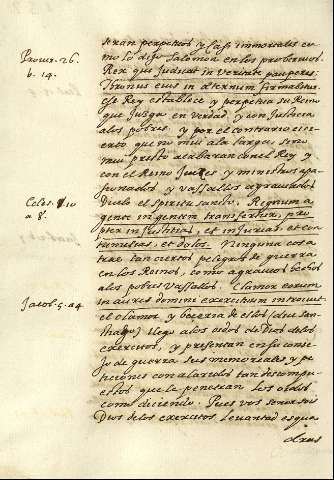 seran perpetuos y casi immortales co
mo lo dijo Salomon en los proverbios.
Prover. 26.
b. 14.
Rex qui judicat in veritate pauperes
thronus eius in aternum firmabitur.
esse Rey establece y perpetua su Reino
que juzga en verdad y con justicia
a los pobres, y por el contrario es ci
erto que no mui a la larga, sino
mui presto alabaran con el Rey y
con el Reino Juezes y ministros apa
sionados y vassallos agraviados
Dixolo el spiritu sancto. Regnum a
Eccles. 10
a 8.
gente in gentem transfertur, pro
pter injusticias, et injurias, et con
tumelias, et dolos. Ninguna cosa
trae tan ciertos peligros de guerra
en los Reinos, como agravios hechos
a los pobres vassallos. Clamor eorum
Jacob. 5. a 4
in aures domini exercituum introivit
el clamor y bozeria de ellos (dice san
thiago) llego a los oidos de Dios de los
exercitos, y presentan en su conse
jo de guerra sus memoriales y pe
ticiones con alaridos tan descompu
estos que le penetran los oidos
como diciendo. Pues vos senor sois
Dios de los exercitos levantad esqua
dras